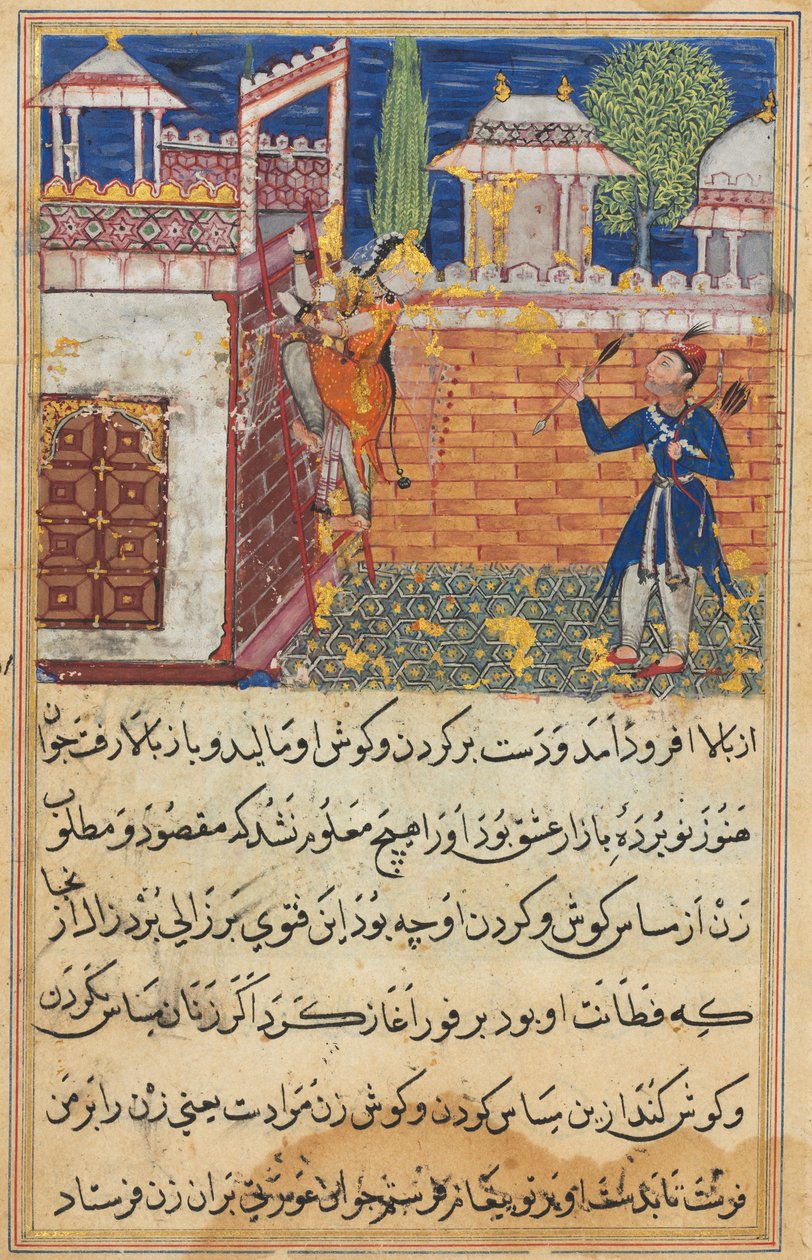 از بالا افرود آمد و دست بر کردن و کوش او مالید و باز بالا رفت جوان
هنوز نو برده بازار عشق بود او را هیچ معلوم نشد که مقصود و مطلوب
زن از مساس کوش و کردن او چه بود این فتوی بر زالی برد زال از نجا
که فطانت او بود بر فور آغاز کرد اکر زنان مساس بکردن
و کوش کنند ازین مساس کردن و کوش زن مرادست یعنی زن را بر من
فرست تا بدست او بر تو پیغام فرستم جوان عورتی بران زن فرستاد